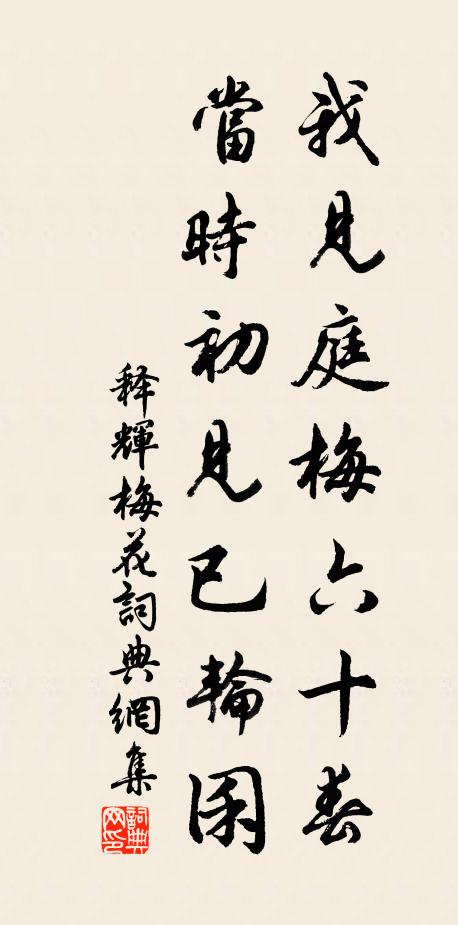 我見庭梅六十春
當時初見已輪囷
釋輝梅花詞典網集
詞典網印